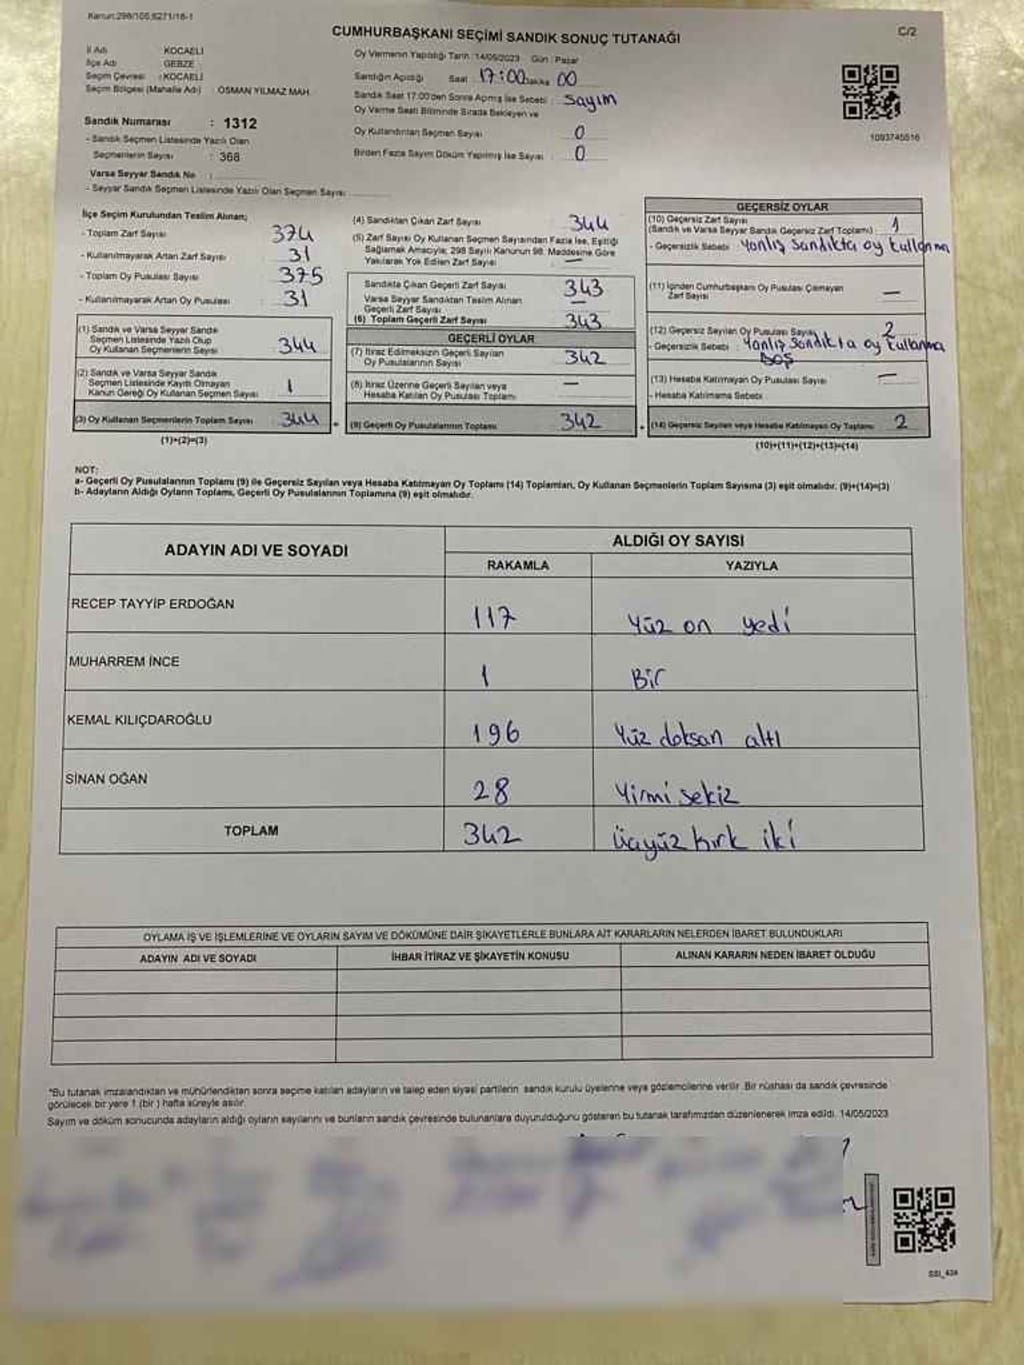 Kanun:298/105,6271/18-1
CUMHURBAŞKANI SEÇİMİ SANDIK SONUÇ TUTANAĞI
C/2
İl Adı : KOCAELİ
İlçe Adı : GEBZE
Seçim Çevresi : KOCAELİ
Seçim Bölgesi (Mahalle Adı) : OSMAN YILMAZ MAH.
Sandık Numarası : 1312
- Sandık Seçmen Listesinde Yazılı Olan
Seçmenlerin Sayısı : 368
Varsa Seyyar Sandık No :
- Seyyar Sandık Seçmen Listesinde Yazılı Olan Seçmen Sayısı :
Oy Vermenin Yapıldığı Tarih : 14/05/2023 Gün : Pazar
Sandığın Açıldığı Saat : 17:00 Dakika 00
Sandık Saat 17:00'den Sonra Açmış İse Sebebi : Sayım
Oy Verme Saati Bitiminde Sırada Bekleyen ve
Oy Kullandırılan Seçmen Sayısı : 0
Birden Fazla Sayım Döküm Yapılmış İse Sayısı : 0
1093745516
İlçe Seçim Kurulundan Teslim Alınan;
- Toplam Zarf Sayısı : 374
- Kullanılmayarak Artan Zarf Sayısı : 31
- Toplam Oy Pusulası Sayısı : 375
- Kullanılmayarak Artan Oy Pusulası : 31
(1) Sandık ve Varsa Seyyar Sandık
Seçmen Listesinde Yazılı Olup
Oy Kullanan Seçmenlerin Sayısı : 344
(2) Sandık ve Varsa Seyyar Sandık
Seçmen Listesinde Kayıtlı Olmayan
Kanun Gereği Oy Kullanan Seçmen Sayısı : 1
(3) Oy Kullanan Seçmenlerin Toplam Sayısı : 344
(1)+(2)=(3)
(4) Sandıktan Çıkan Zarf Sayısı : 344
(5) Zarf Sayısı Oy Kullanan Seçmen Sayısından Fazla İse, Eşitliği
Sağlamak Amacıyla; 298 Sayılı Kanunun 98. Maddesine Göre
Yakılarak Yok Edilen Zarf Sayısı : —
Sandıkta Çıkan Geçerli Zarf Sayısı : 343
Varsa Seyyar Sandıktan Teslim Alınan
Geçerli Zarf Sayısı : —
(6) Toplam Geçerli Zarf Sayısı : 343
GEÇERLİ OYLAR
(7) İtiraz Edilmeksizin Geçerli Sayılan
Oy Pusulalarının Sayısı : 342
(8) İtiraz Üzerine Geçerli Sayılan veya
Hesaba Katılan Oy Pusulası Toplamı : —
(9) Geçerli Oy Pusulalarının Toplamı : 342
GEÇERSİZ OYLAR
(10) Geçersiz Zarf Sayısı
(Sandık ve Varsa Seyyar Sandık Geçersiz Zarf Toplamı) : 1
- Geçersizlik Sebebi : Yanlış Sandıkta oy kullanma
(11) İçinden Cumhurbaşkanı Oy Pusulası Çıkmayan
Zarf Sayısı : —
(12) Geçersiz Sayılan Oy Pusulası Sayısı : 2
- Geçersizlik Sebebi : Yanlış Sandıkta oy kullanma
Boş
(13) Hesaba Katılmayan Oy Pusulası Sayısı : —
- Hesaba Katılmama Sebebi :
(14) Geçersiz Sayılan veya Hesaba Katılmayan Oy Toplamı : 2
(10)+(11)+(12)+(13)=(14)
NOT:
a- Geçerli Oy Pusulalarının Toplamı (9) ile Geçersiz Sayılan veya Hesaba Katılmayan Oy Toplamı (14) Toplamları, Oy Kullanan Seçmenlerin Toplam Sayısına (3) eşit olmalıdır. (9)+(14)=(3)
b- Adayların Aldığı Oyların Toplamı, Geçerli Oy Pusulalarının Toplamına (9) eşit olmalıdır.
ADAYIN ADI VE SOYADI
ALDIĞI OY SAYISI
RAKAMLA YAZIYLA
RECEP TAYYİP ERDOĞAN 117 Yüz on yedi
MUHARREM İNCE 1 Bir
KEMAL KILIÇDAROĞLU 196 Yüz doksan altı
SİNAN OĞAN 28 Yirmi sekiz
TOPLAM 342 Üçyüz kırk iki
OYLAMA İŞ VE İŞLEMLERİNE VE OYLARIN SAYIM VE DÖKÜMÜNE DAİR ŞİKAYETLERLE BUNLARA AİT KARARLARIN NELERDEN İBARET BULUNDUKLARI
ADAYIN ADI VE SOYADI İHBAR İTİRAZ VE ŞİKAYETİN KONUSU ALINAN KARARIN NEDEN İBARET OLDUĞU
*Bu tutanak imzalandıktan ve mühürlendikten sonra seçime katılan adayların ve talep eden siyasi partilerin sandık kurulu üyelerine veya gözlemcilerine verilir. Bir nüshası da sandık çevresinde
görülecek bir yere 1 (bir) hafta süreyle asılır.
Sayım ve döküm sonucunda adayların aldığı oyların sayılarını ve bunların sandık çevresinde bulunanlara duyurulduğunu gösteren bu tutanak tarafımızdan düzenlenerek imza edildi. 14/05/2023